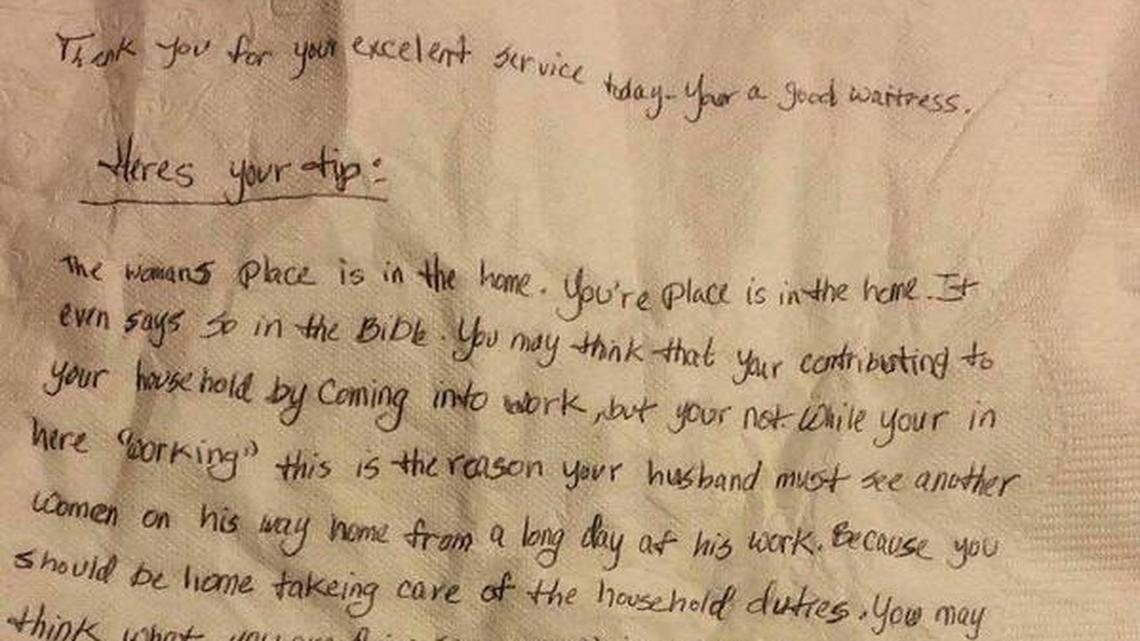 Thank you for your excelent service today - Your a good waitress.
Heres your tip:
The womans place is in the home. You're place is in the home. It
even says so in the Bible. You may think that your contributing to
your household by coming into work, but your not. While your in
here "working" this is the reason your husband must see another
women on his way home from a long day at his work. Because you
should be home takeing care of the household duties. You may
think what you